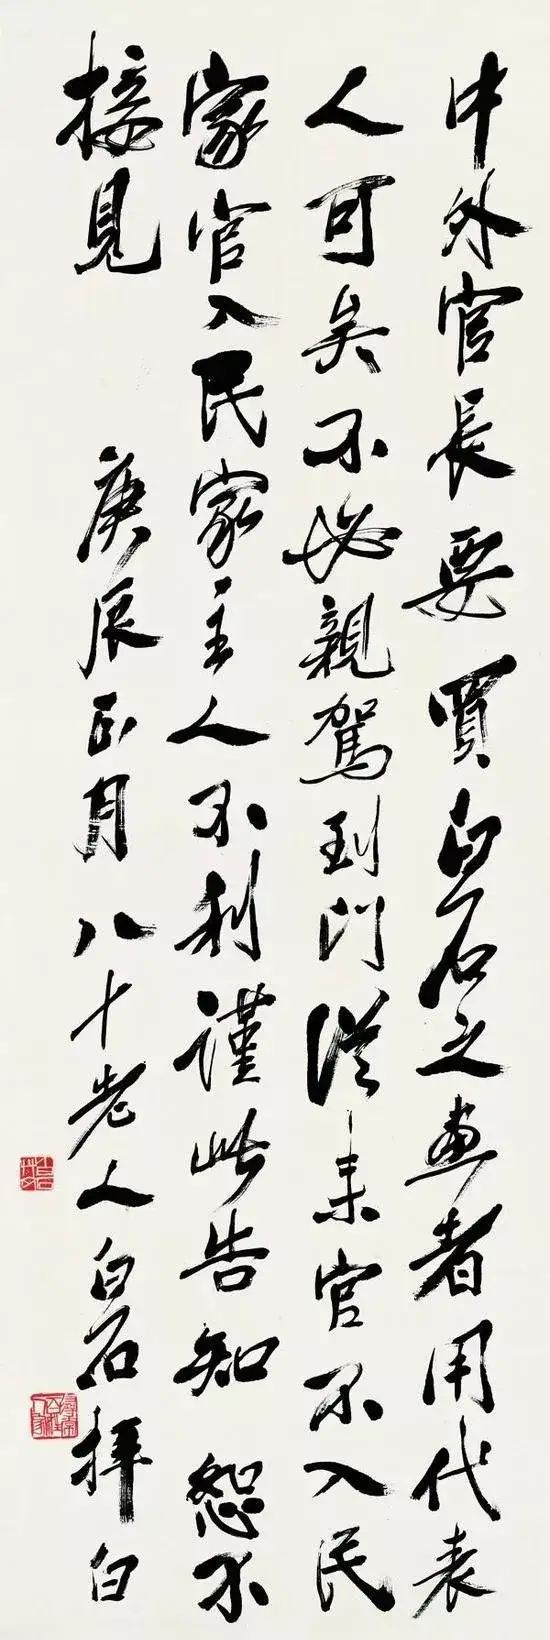 中外官長要買白石之畫者用代表
人可矣不必親駕到門從來官不入民
家官入民家主人不利謹此告知恕不
接見
庚辰正月八十老人白石拜白